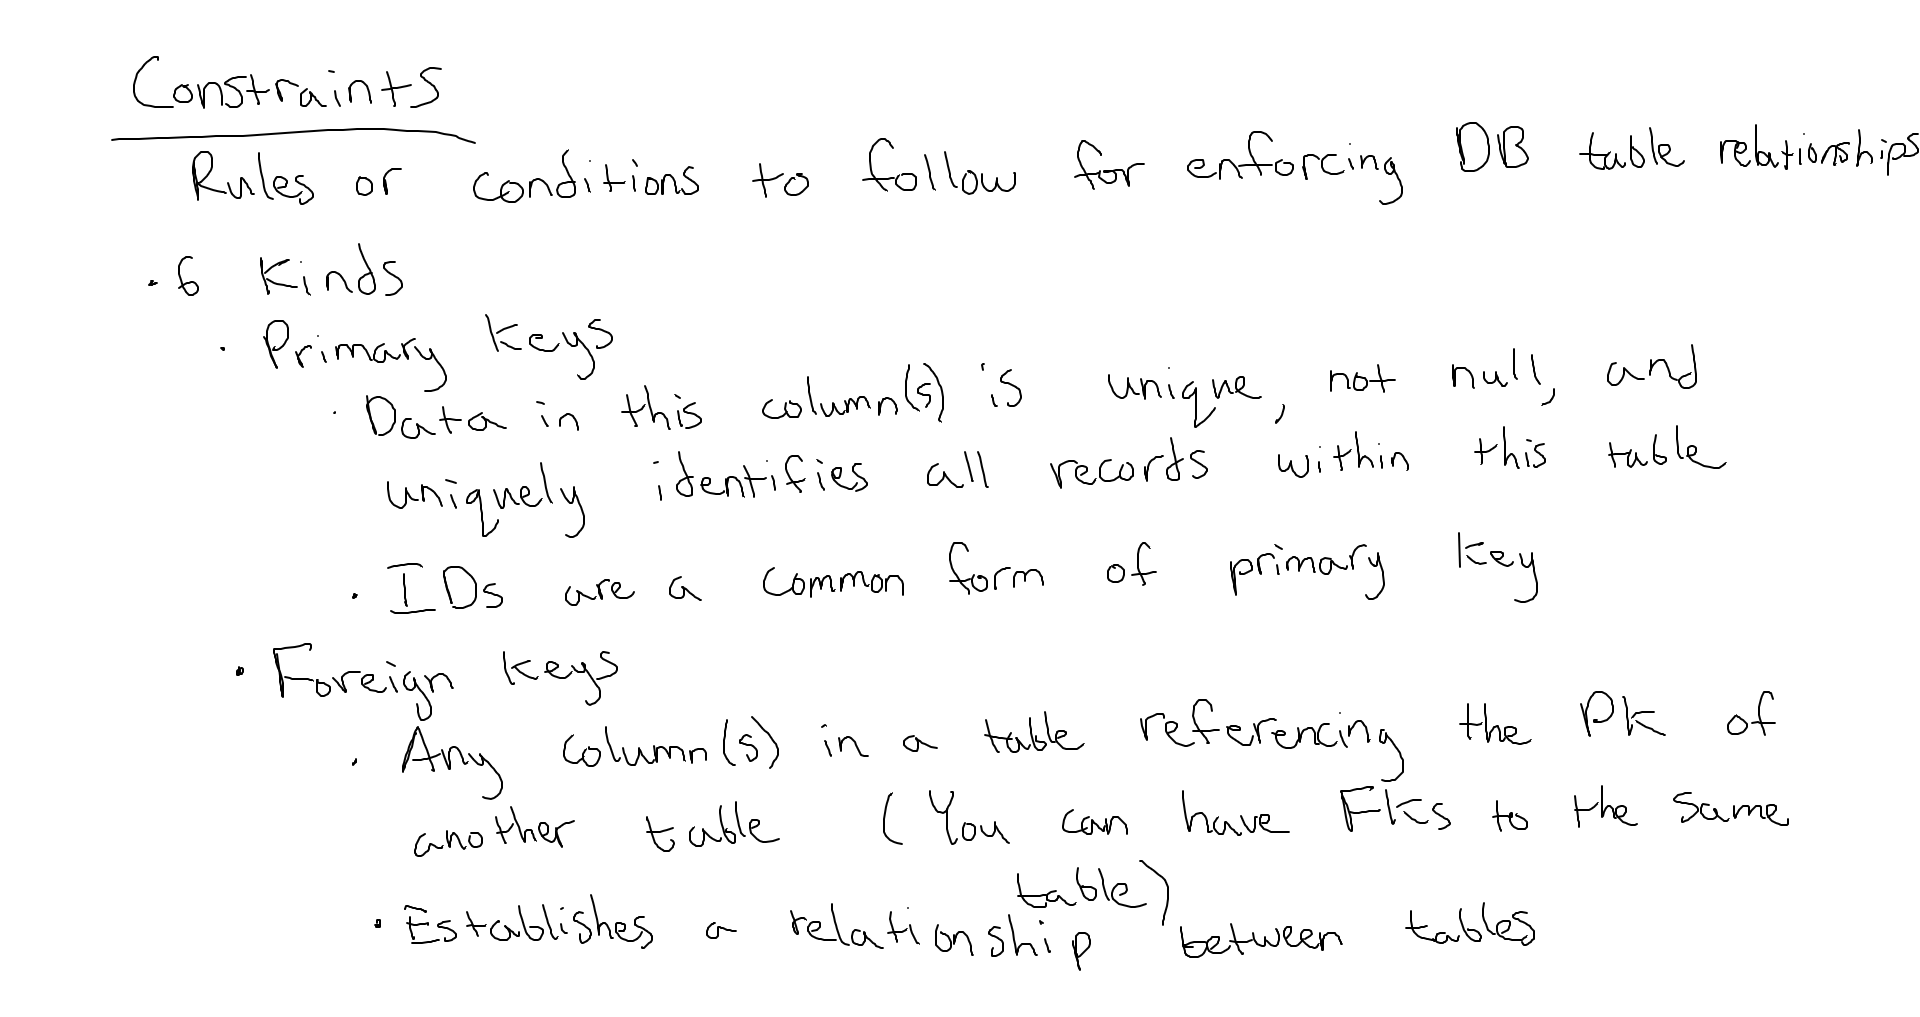 Constraints
Rules or conditions to follow for enforcing DB table relationships
· 6 Kinds
· Primary Keys
· Data in this column(s) is unique, not null, and
uniquely identifies all records within this table
· IDs are a common form of primary key
· Foreign keys
· Any column(s) in a table referencing the PK of
another table (You can have FKs to the same
table)
· Establishes a relationship between tables